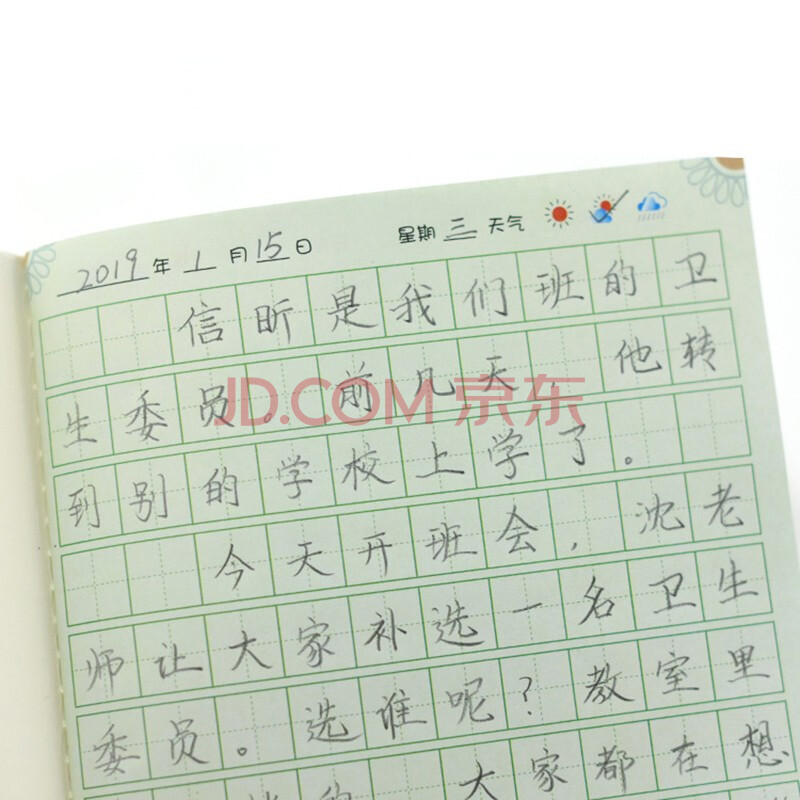 2019年1月15日 星期三天气
信昕是我们班的卫
生委员。前几天，他转
到别的学校上学了。
今天开班会，沈老
师让大家补选一名卫生
委员。选谁呢？教室里
大家都在想
JD.COM 京东